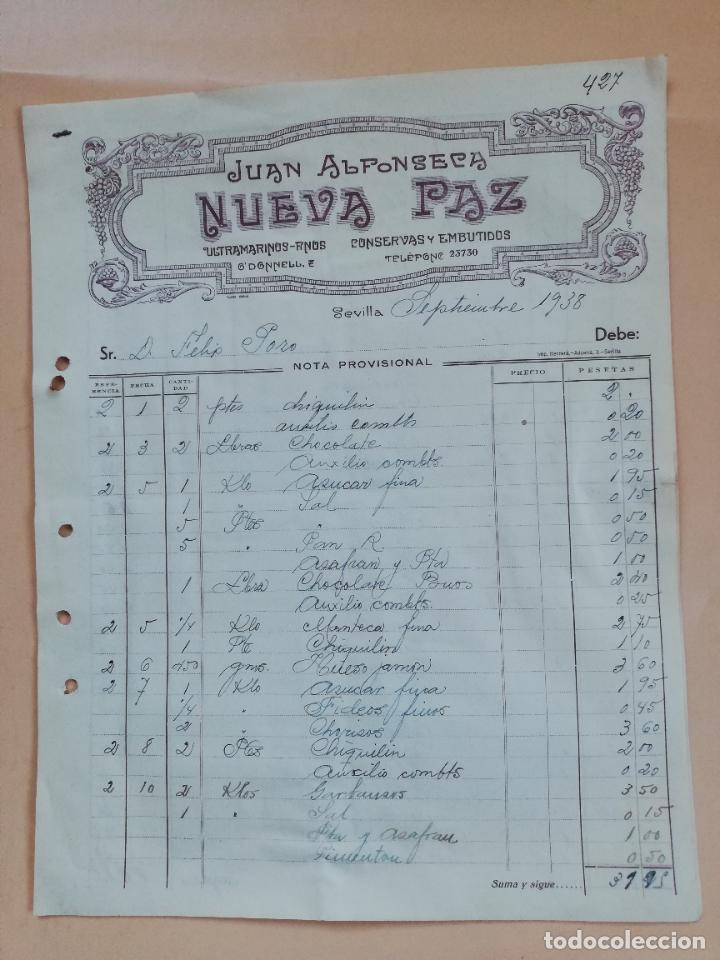 427
JUAN ALFONSECA
NUEVA PAZ
ULTRAMARINOS-FINOS CONSERVAS Y EMBUTIDOS
O'DONNELL, 2 TELÉFONO 23730
Sevilla Septiembre 1938
Sr. D. Felix Poro Debe:
Imp. Herrera.-Sevilla
NOTA PROVISIONAL
REFERENCIA FECHA CANTIDAD PRECIO PESETAS
2 1 2 ptes chiquilin 2 .
auxilio combts 0 20
2 3 2 Lbras Chocolate 2 00
Auxilio combts. 0 20
2 5 1 Klo Azucar fina 1 95
1 " Sal 0 15
5 Ptes " 0 50
5 " Pan R 0 50
Azafran y Pta 1 00
1 Lbra Chocolate 2 40
Auxilio combts. 0 25
2 5 1/4 Klo Manteca fina 2 75
1 Pte Chiquilin 1 10
2 6 450 gmos. Hueso jamon 3 60
2 7 1 Klo Azucar fina 1 95
1/4 " Fideos finos 0 45
2 Chorisos 3 60
2 8 2 Ptes Chiquilin 2 00
Auxilio combts 0 20
2 10 2 Klos Garbansos 3 50
1 " Sal 0 15
Pta y Asafran 1 00
Pimenton 0 50
Suma y sigue...... 95
todocoleccion
todocoleccion.net